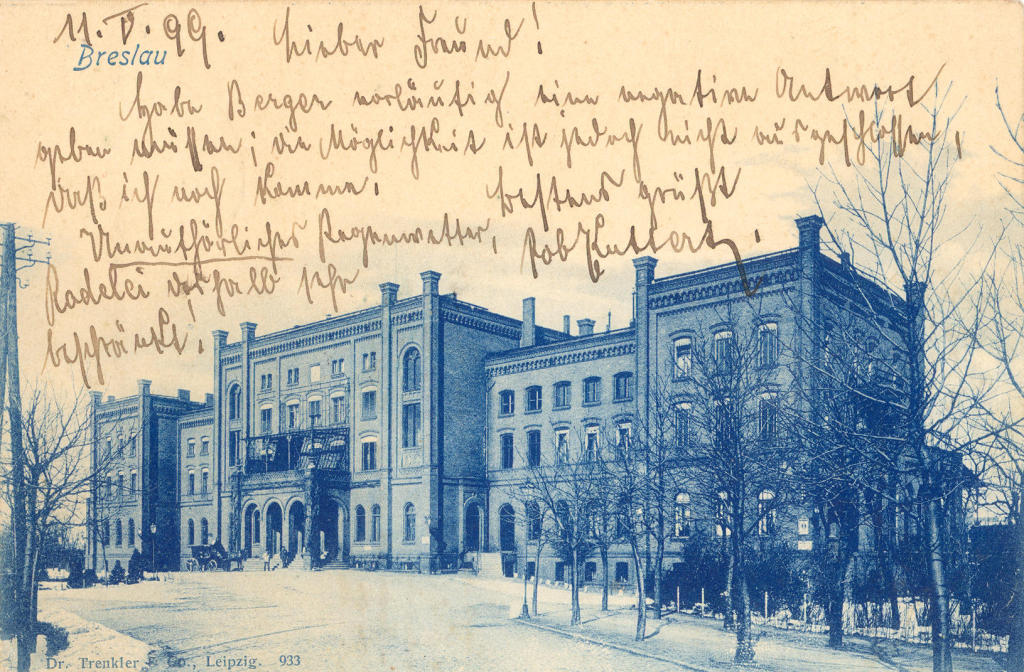 11. V. 99. Lieber Freund!
Breslau
Habe Berger vorläufig eine negative Antwort
geben müssen; die Möglichkeit ist jedoch nicht ausgeschlossen,
daß ich noch komme. Bestens grüßt
Unaufhörliches Regenwetter, Rob
Radelei deshalb sehr
beschränkt!
Dr. Trenkler & Co., Leipzig. 933